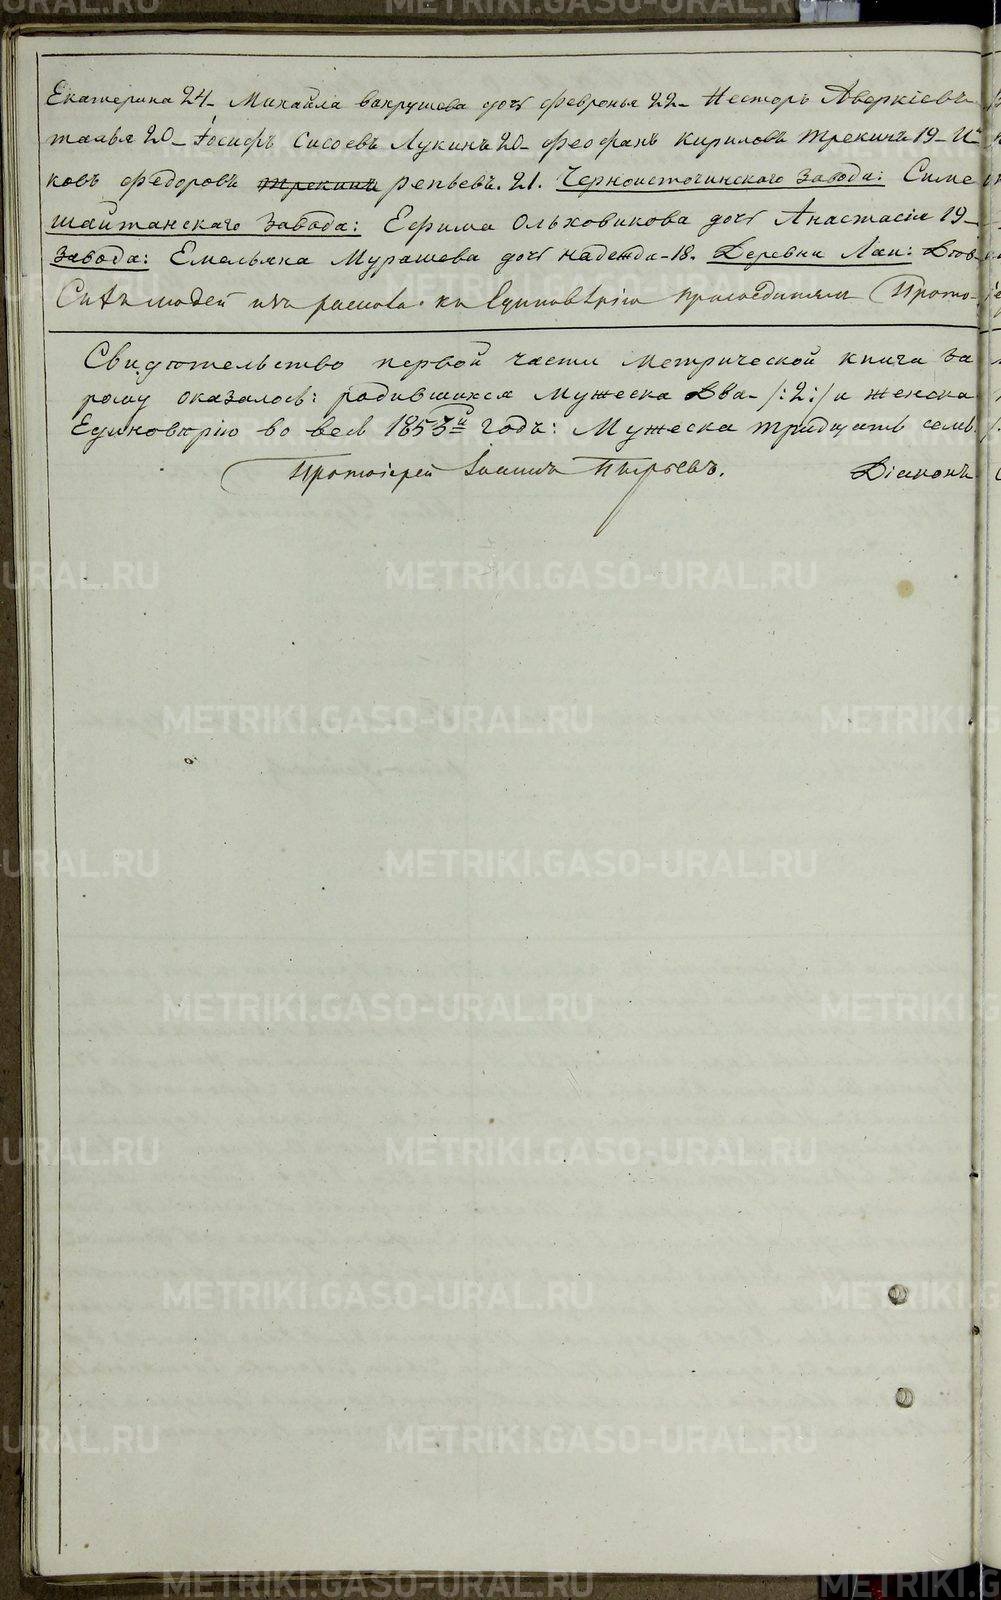 Екатерина 24 – Михайла Вахрушева дочь Февронья 22 – Несторъ Аверкіевъ
талья 20 – Іосифъ Сисоевъ Лукинъ 20 – Феофанъ Кириловъ Трекинъ 19 – И
ковъ Федоровъ Трекинъ репьевъ. 21. Черноисточинскаго завода: Симе
шайтанскаго завода: Ефима Ольховикова дочь Анастасія 19 –
завода: Емельяна Мурашева дочь Надежда – 18. Деревни Лаи:
Сихъ людей изъ раскола къ Единовѣрію присоединялъ Прото-
Свидѣтельство первой части Метрической книги за
рому оказалось: родившихся Мужеска Два – /:2:/ и женска
Единовѣрію во весь 1853й годъ: Мужеска тридцать семь
Протоіерей Іоаннъ Пырьевъ. Діаконъ
METRIKI.GASO-URAL.RU